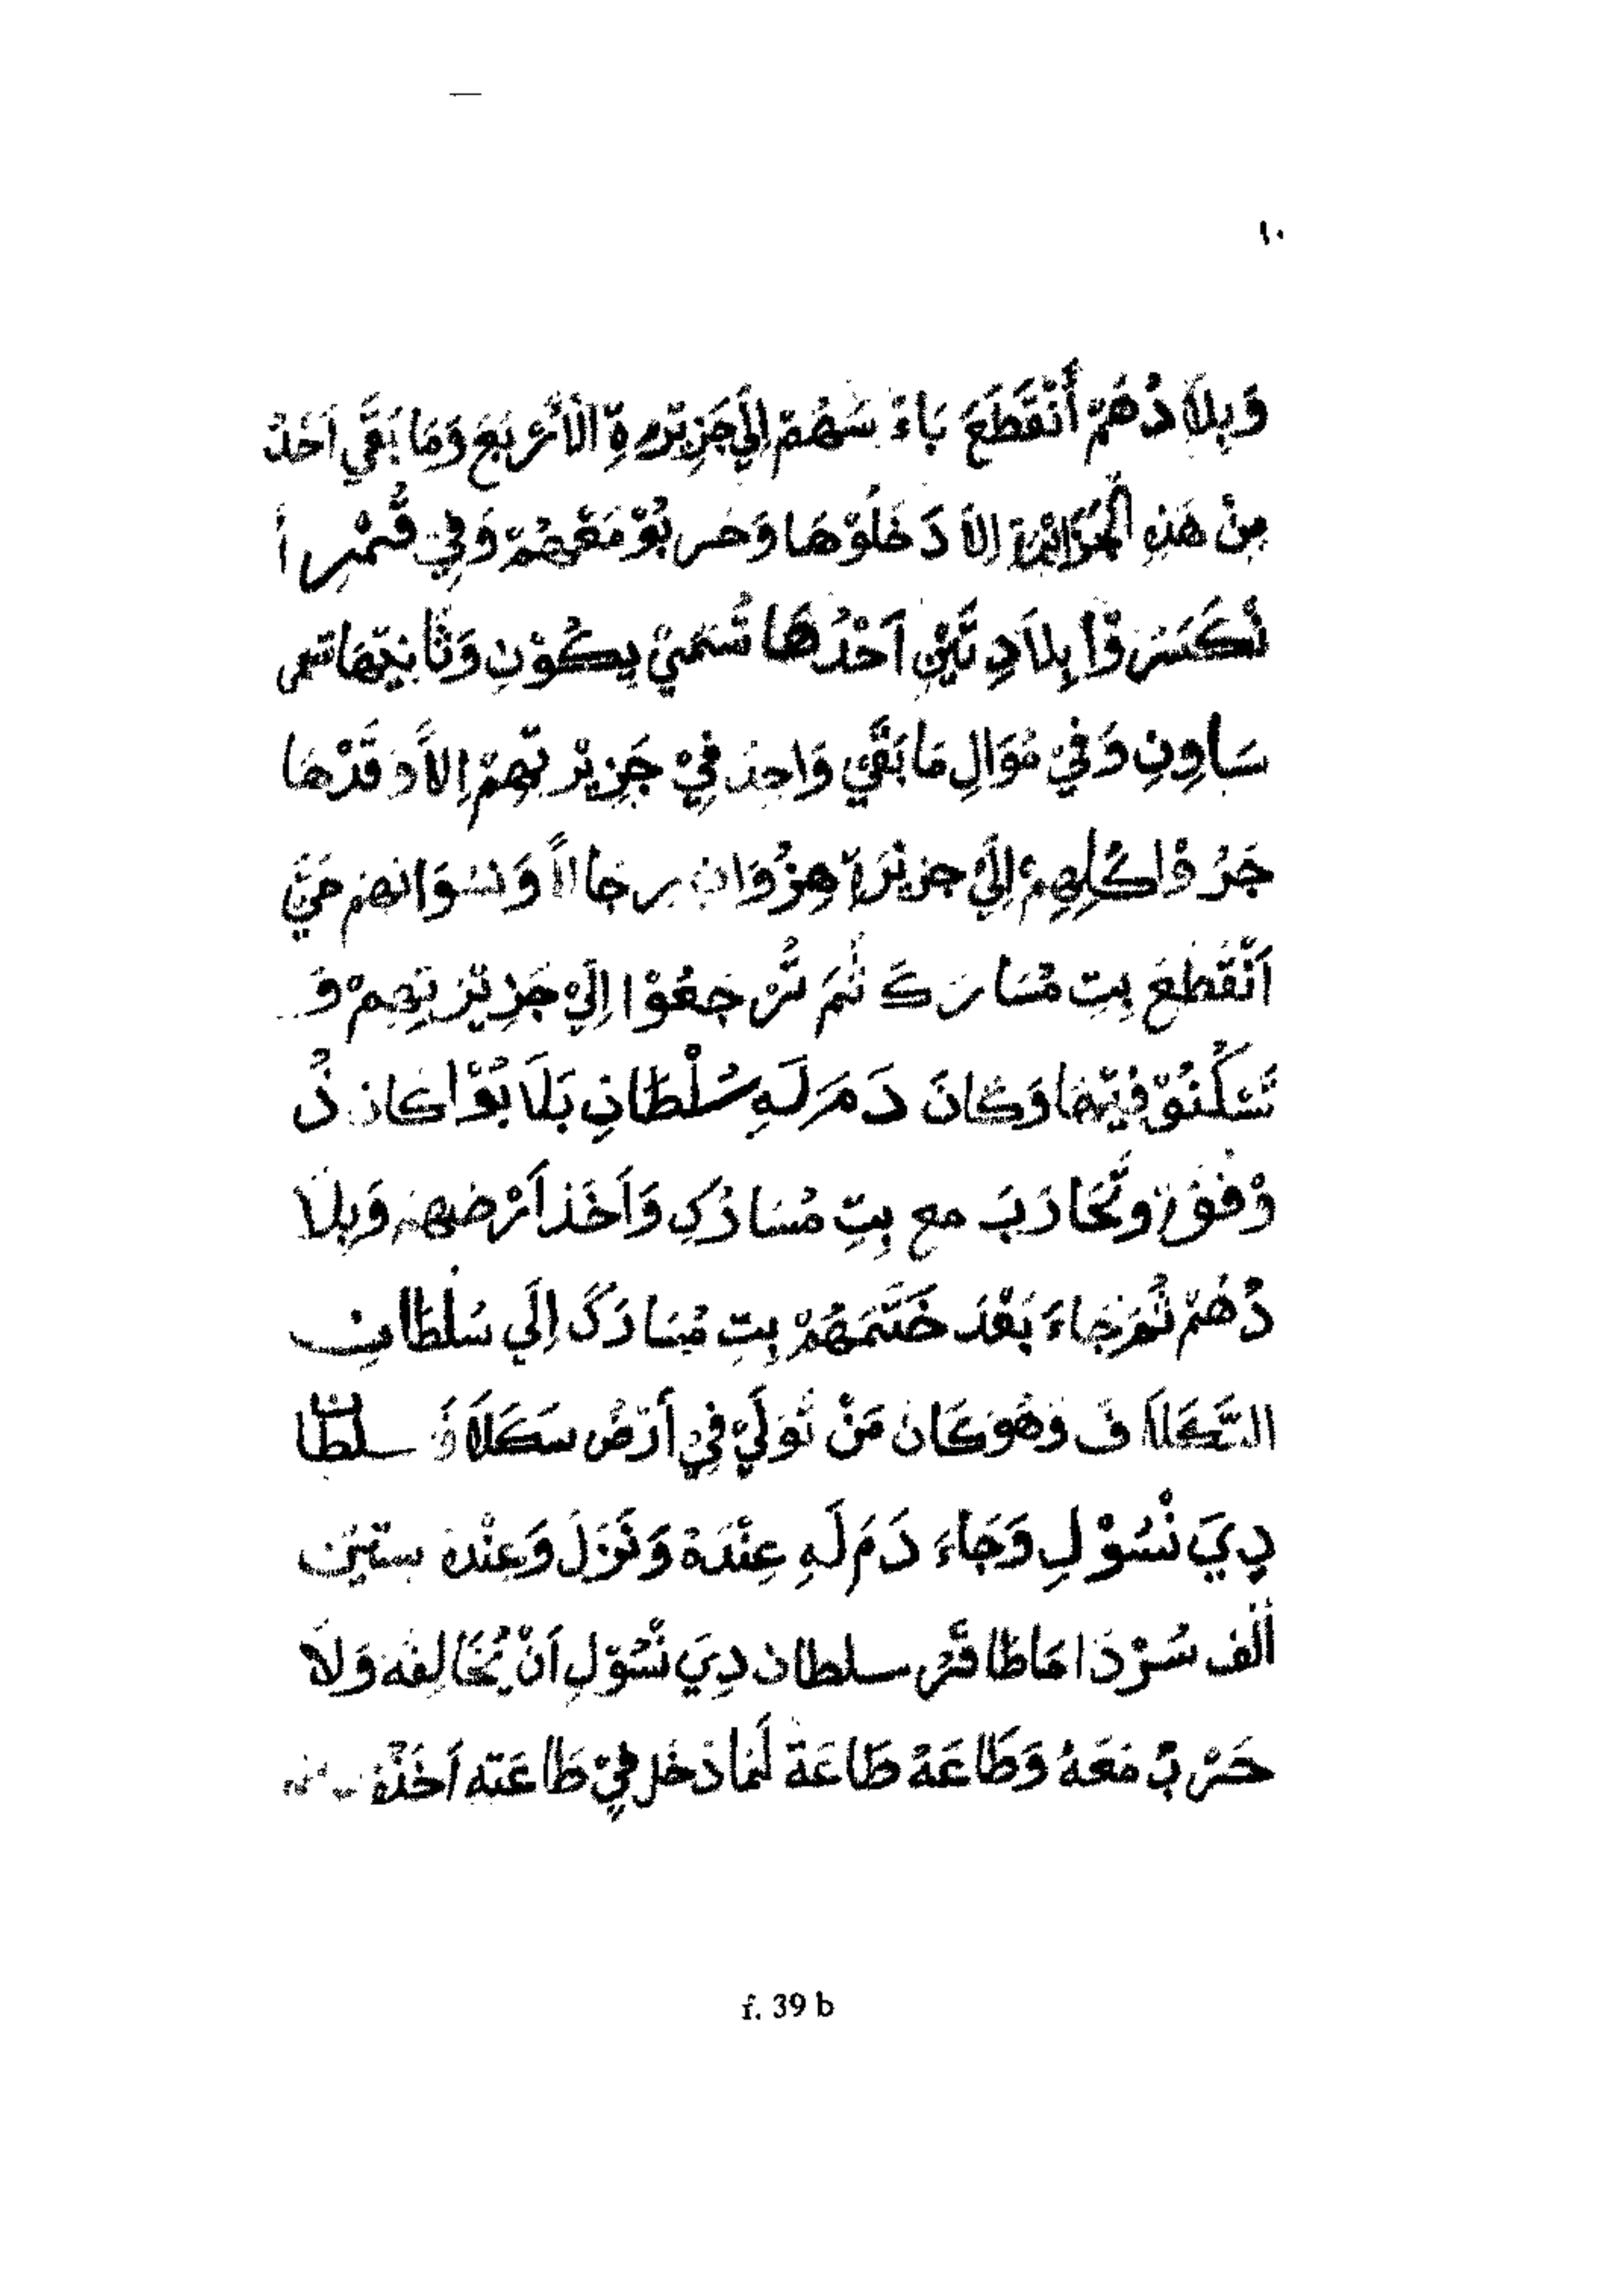 ١٠
وَبِلَادُهُمْ أَنْقَطَعَ بَاءَ سَهُمْ إِلَي جَزِيْرَةِ الْأَرْبَعَ وَمَا بَقَّي اَحَدُ
مِنْ هَذِهِ الْجَزَائِرْ إِلاَ دَخَلُوْهَا وَحَربُوْ مَعَهُمْ وَفِي قُمْرِ أَ
نْكَسَرُوْا بِلاَدِتَيْنِ اَحْدُهَا تُسَمَيْ يِكُوْنِ وَثَانِيْهَا تس
سَاوِنِ وَفيْ مُوَالِ مَا بَقَّيْ وَاحِدُ فِيْ جَزِيْرْتِهِمْ إِلاَّ وَقَدْهَا
جَرُوْا كُلِهِمْ إِلَيْ جزِيْرَةْ هِزُوَانِ رجَالاً وَنسْوَانهمْ حَتَّي
اَنْقَطَعَ بِتِ مُسَارَكَ ثُمَ تَّرْجَعُوْا إِلَيْ جَزِيْرَتِهِمْ وَ
تَسْكُنُوْ فِيْهَا وَكَانَ دَمَرَلَهِ سُلْطَانِ بَلَابُوْا كَانَ ذُ
وْفنَونْ وتَّحَارَبَ مع بِتِ مُسَارَكِ وَاَخَذ اَرْضهمْ وَبِلَا
دُهُمْ ثُمَ جَاءَ بَعْدَ خَتَّمَهُمْ بِتِ مُسَارَكَ إِلَي سُلْطَانِ
السَّكَلاَفَ وَهُوَ كَانَ مَنْ تُوَلَيْ فِيْ أَرْضُ سَكَلاَفَ سلطان
دِيَ نْسُوْلِ وَجَاءَ دَمَ لَهِ عِنْدَهْ وَنَزَلَ وَعِنْدَهْ ستيْنَ
اَلْف سُرْدَا مَاطَاقَرْ سلطان دِيَ نْسُوْلِ اَنْ يُّخَالِفَه وَلَا
حَرْبُ مَعَهُ وَطَاعَهْ طَاعَةْ لَمَا دَخَل فِيْ طَاعَتِه اَخَذَهْ
f. 39 b